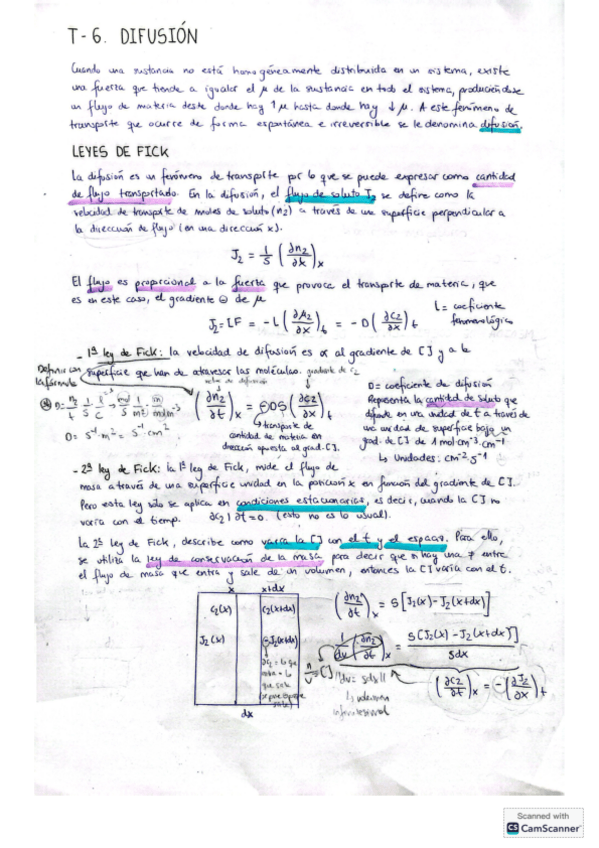 T-6. DIFUSIÓN
Cuando una sustancia no está homogéneamente distribuida en un sistema, existe
una fuerza que tiende a igualar el μ de la sustancia en todo el sistema, produciéndose
un flujo de materia desde donde hay ↑μ hasta donde hay ↓μ. A este fenómeno de
transporte que ocurre de forma espontánea e irreversible se le denomina difusión.
LEYES DE FICK
La difusión es un fenómeno de transporte por lo que se puede expresar como cantidad
de flujo transportado. En la difusión, el flujo de soluto J₂ se define como la
velocidad de transporte de moles de soluto (n₂) a través de una superficie perpendicular a
la dirección de flujo (en una dirección x).
J₂ = 1/S (∂n₂/∂t)ₓ
El flujo es proporcional a la fuerza que provoca el transporte de materia, que
es en este caso, el gradiente ⊖ de μ
L = coeficiente
fenomenológico
J₂ = LF = -L (∂μ₂/∂x)ₜ = -D (∂c₂/∂x)ₜ
- 1ª ley de Fick: la velocidad de difusión es α al gradiente de [ ] y a la
superficie que han de atravesar las moléculas.
gradiente de c₂
Definir con
la fórmula
(∂n₂/∂t)ₓ = ⊖DS (∂c₂/∂x)ₜ
transporte de
cantidad de materia en
dirección opuesta al grad. [ ]
D = coeficiente de difusión
Representa la cantidad de soluto que
difunde en una unidad de t a través de
una unidad de superficie bajo un
grad. de [ ] de 1 mol·cm⁻³·cm⁻¹
↳ Unidades: cm²·s⁻¹
- 2ª ley de Fick: la 1ª ley de Fick, mide el flujo de
masa a través de una superficie unidad en la posición x en función del gradiente de [ ].
Pero esta ley sólo se aplica en condiciones estacionarias, es decir, cuando la [ ] no
varía con el tiempo. ∂c₂/∂t = 0. (esto no es lo usual).
La 2ª ley de Fick, describe como varía la [ ] con el t y el espacio. Para ello,
se utiliza la ley de conservación de la masa para decir que si hay una ≠ entre
el flujo de masa que entra y sale de un volumen, entonces la [ ] varía con el t.
x x+dx
c₂(x) c₂(x+dx)
J₂(x) J₂(x+dx)
dx
(∂n₂/∂t)ₓ = S[J₂(x) - J₂(x+dx)]
1/dv (∂n₂/∂t)ₓ = S[J₂(x) - J₂(x+dx)]/Sdx
n/v = [ ]
dv = sdx
↳ volumen
infinitesimal
(∂c₂/∂t)ₓ = -(∂J₂/∂x)ₜ
Scanned with
CS CamScanner